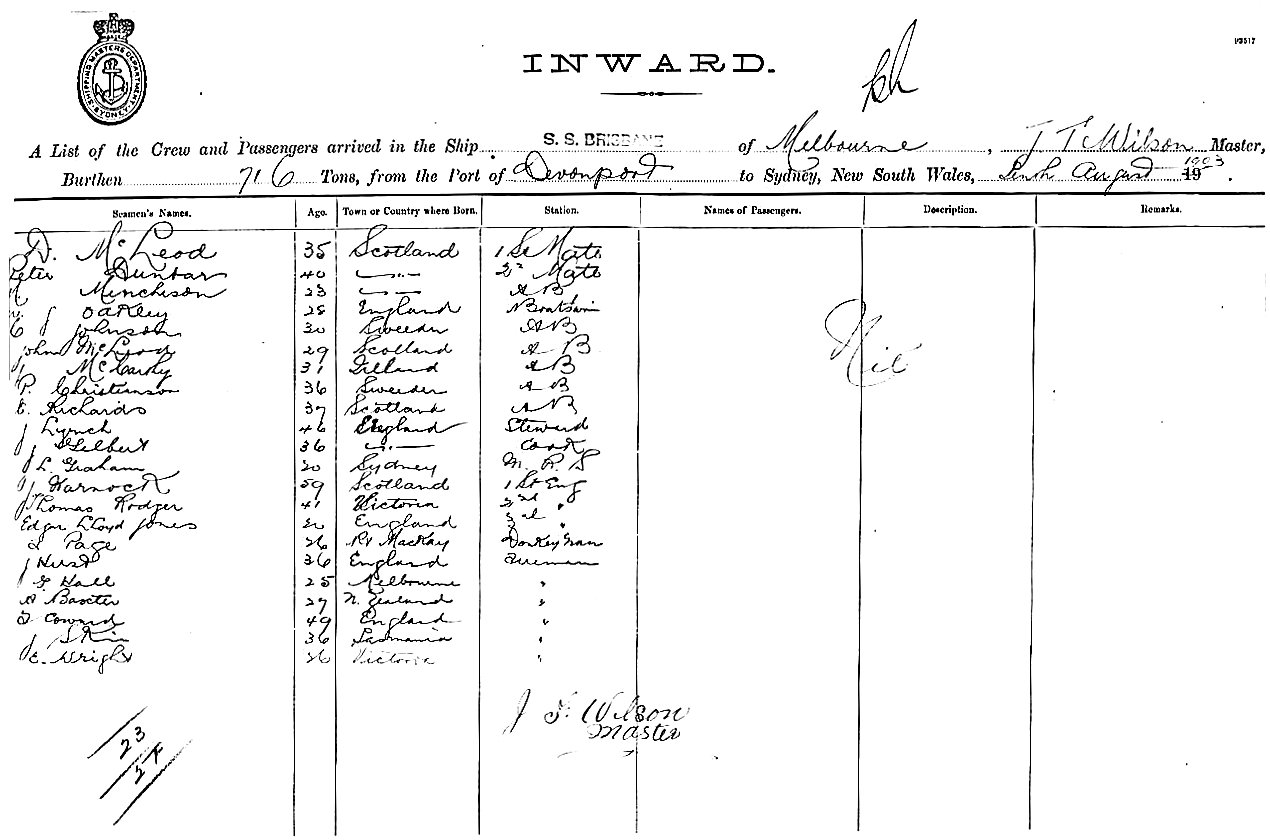 SHIPPING MASTERS DEPARTMENT
SYDNEY
INWARD.
A List of the Crew and Passengers arrived in the Ship S. S. BRISBANE of Melbourne, J T Wilson Master,
Burthen 716 Tons, from the Port of Devonport to Sydney, New South Wales, Tenth August 19 1903.
Seamen's Names. Age. Town or Country where Born. Station. Names of Passengers. Description. Remarks.
D. McLeod 35 Scotland 1 St Mate
Peter Dunbar 40 —"— 2nd Mate
Minchison 23 —"— A B
J Oakley 28 England Boatswin
C J Johnson 30 Sweeden A B
John McLeod 29 Scotland A B
J McCarthy 31 A B
P. Christianson 36 Sweeden A B
E. Richards 37 Scotland A B
J Lynch 46 England Steward
J Gilbert 36 —"— Cook
J L. Graham 20 Sydney M. R. S
J Warnock 59 Scotland 1 St Eng
Thomas Rodger 41 Victoria 2nd "
Edgar Lloyd Jones England 3rd "
Page 26 Pt MacKay Donkeyman
J Hurst 36 England Fireman
J G Hall 25 Melbourne "
A Baxter 29 N. Zealand "
Coward 49 England "
J Skin 36 Tasmania "
E. Wright 26 Victoria "
Nil
J T. Wilson
Master
23
24